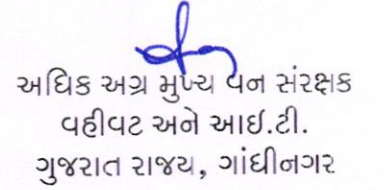 અધિક અગ્ર મુખ્ય વન સંરક્ષક
વહીવટ અને આઈ.ટી.
ગુજરાત રાજ્ય, ગાંધીનગર